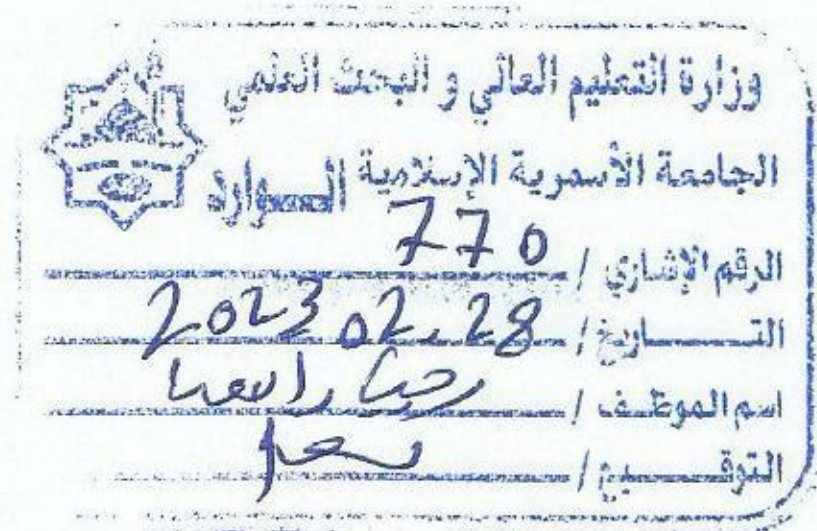 وزارة التعليم العالي و البحث العلمي
الجامعة الأسمرية الإسلامية الــــوارد
الرقم الإشاري / 770
التــــــاريخ / 2023.02.28
اسم الموظــف /
التوقــــــيع /